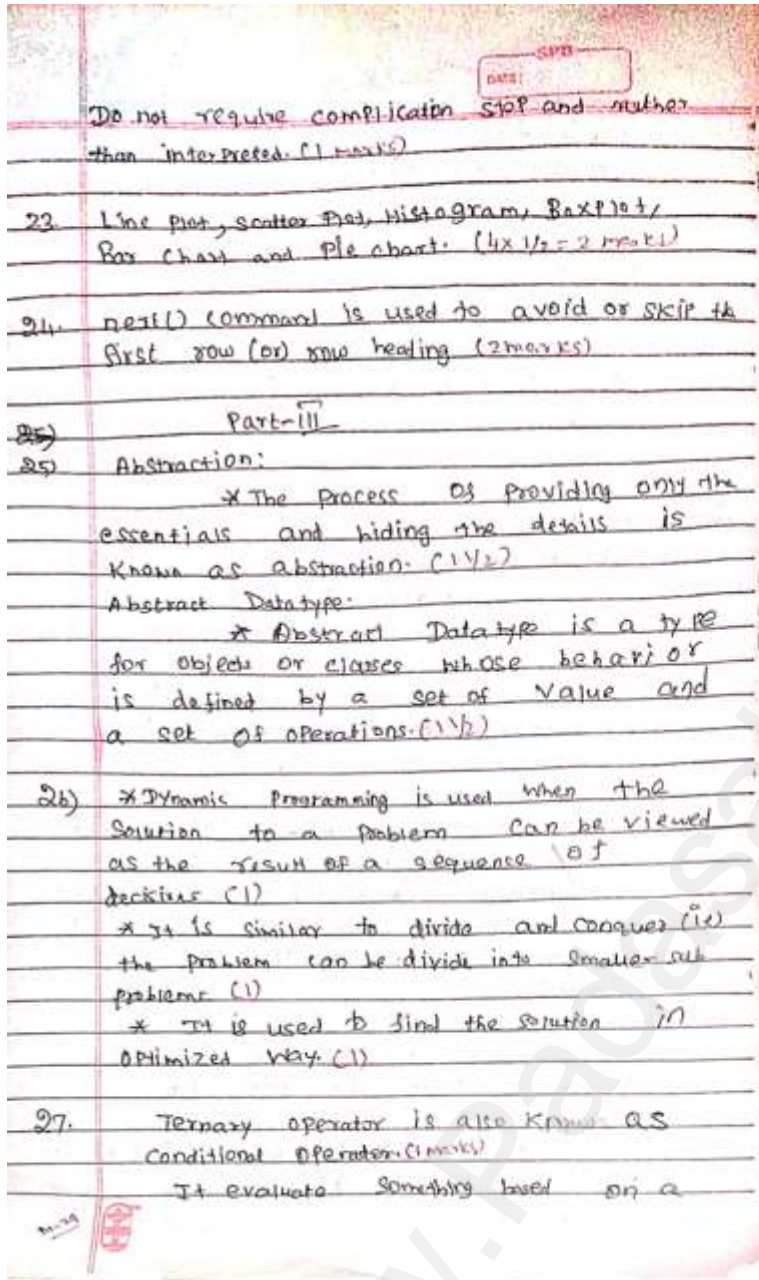 SPB
DATE:
Do not require complication step and ruther
than interpreted. (1 marks)
23. Line Plot, scatter Plot, Histogram, BoxPlot,
Bar Chart and Pie chart. (4x 1/2 = 2 marks)
24. next() command is used to avoid or skip the
first row (or) row heading (2 marks)
Part-III
25) Abstraction:
* The process of providing only the
essentials and hiding the details is
known as abstraction. (1 1/2)
Abstract Datatype:
* Abstract Datatype is a type
for objects or classes whose behavior
is defined by a set of value and
a set of operations. (1 1/2)
26) * Dynamic Programming is used when the
Solution to a problem can be viewed
as the result of a sequence of
decisions (1)
* It is similar to divide and conquer (ie)
the problem can be divide into smaller sub
problems (1)
* It is used to find the solution in
optimized way. (1)
27. Ternary operator is also known as
conditional operator. (1 marks)
It evaluate something based on a